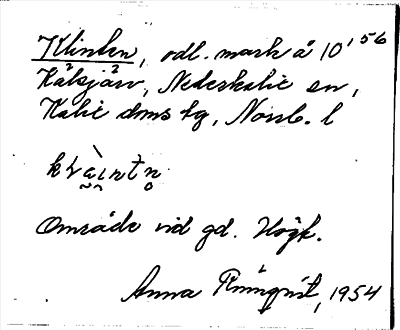 Klinten, odl. mark å 10'56
Kälsjärv, Nederkalix sn,
Kalix dms hg, Norrb. l
Område vid gd. Högt.
Anna Rönnqvist, 1954